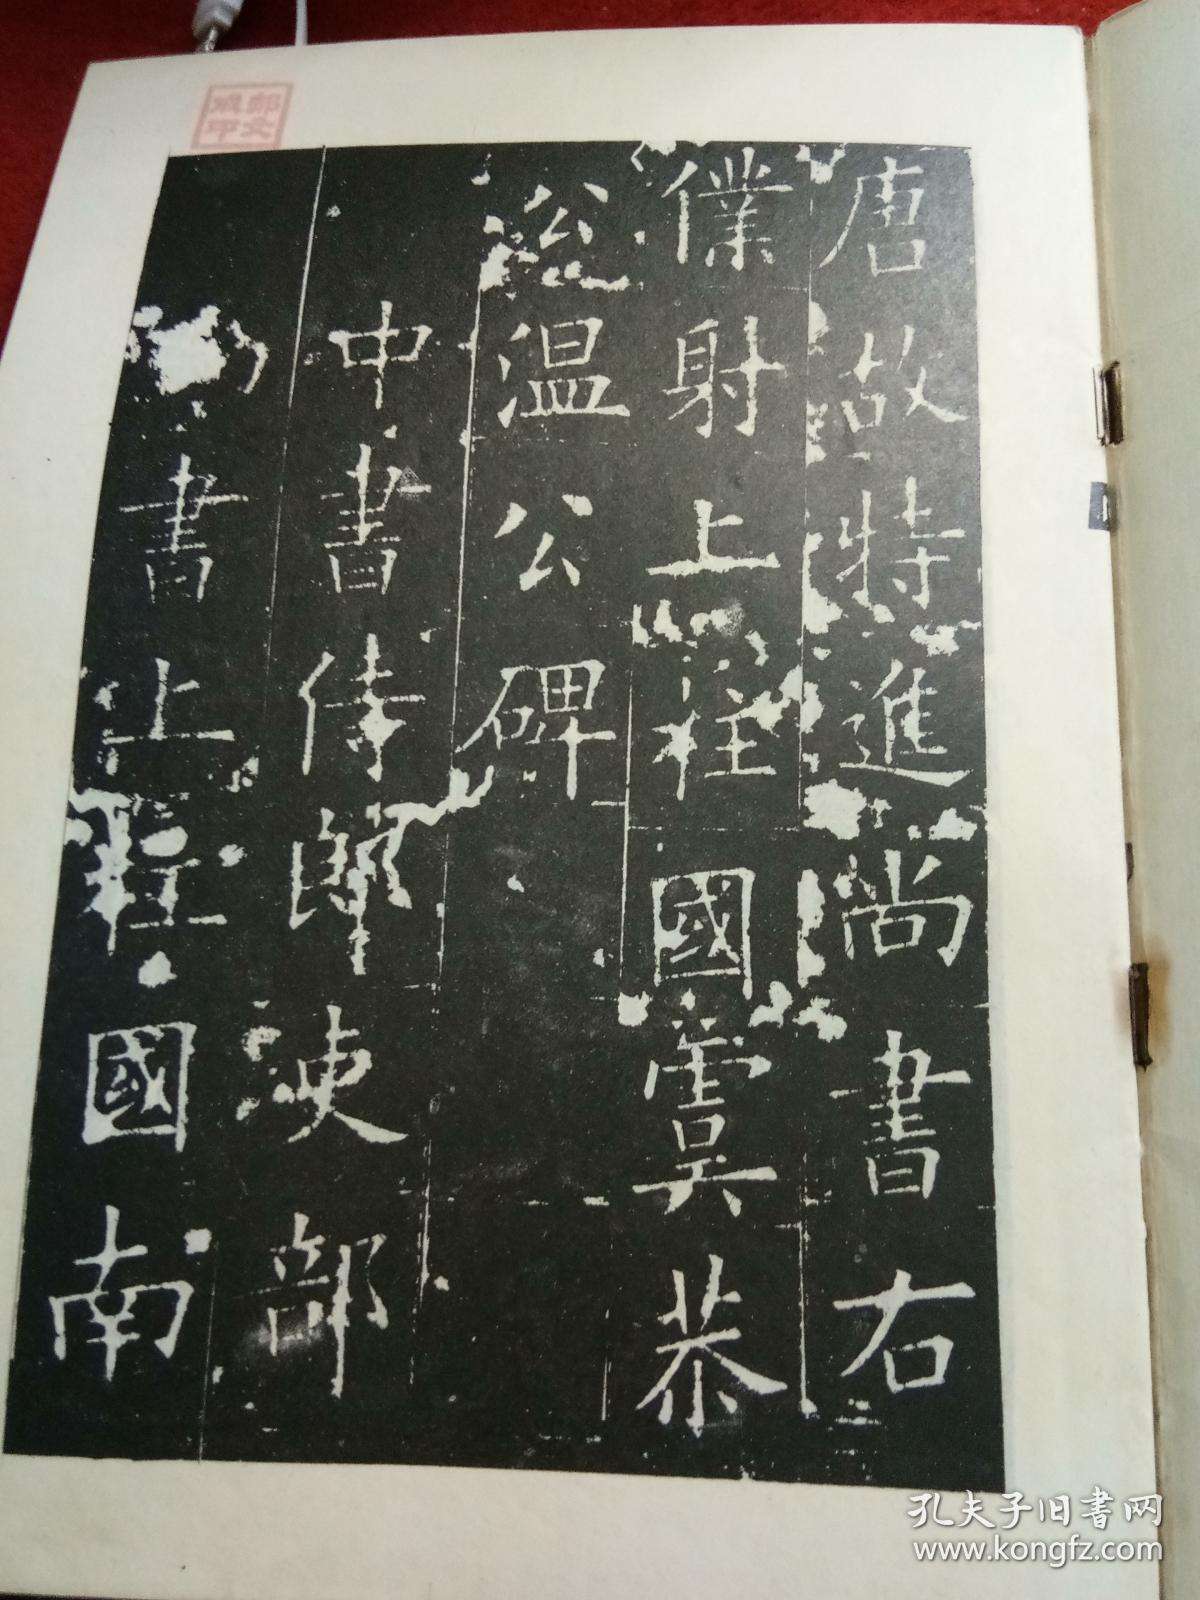 唐故特進尚書右
僕射上柱國虞恭
公溫公碑
中書侍郎吏部
書上柱國南
孔夫子旧书网
www.kongfz.com